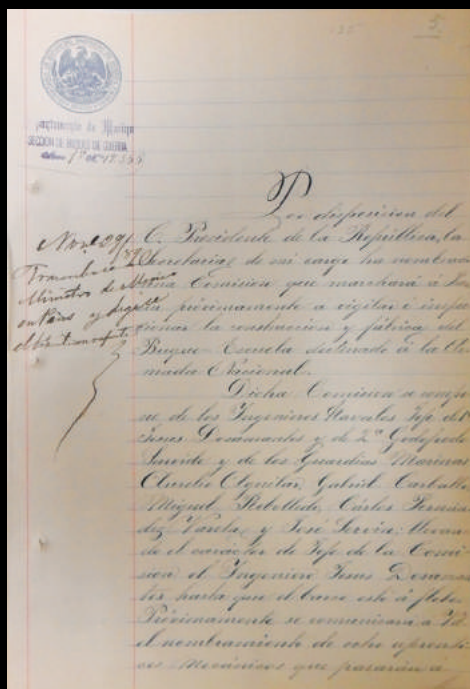 135 5.
Departamento de Marina
SECCION DE BUQUES DE GUERRA
Nov. 20/91
Transcríbase al
Ministro de Mexico
en Paris y dígase
Por disposicion del
C. Presidente de la República, la
Secretaria de mi cargo ha nombrado
una Comision que marchará á
próximamente a vigilar é inspec
cionar la construccion y fábrica del
Buque-Escuela destinado á la Ar
mada Nacional.
Dicha Comision se compo
ne de los Ingenieros Navales Jefe del
Jesus Desamantes y de 2ª Godofredo
y de los Guardias Marinas
Aurelio Aguilar, Gabriel Carballo
Miguel Rebolledo, Cárlos Fernán
dez Varela y José Servin; llevan
do el carácter de Jefe de la Comi
sion el Ingeniero Jesus Desaman
tes hasta que el barco esté á flote.
Próximamente se comunicará a Vd.
el nombramiento de ocho aprendi
ces Mecánicos que pasarán a